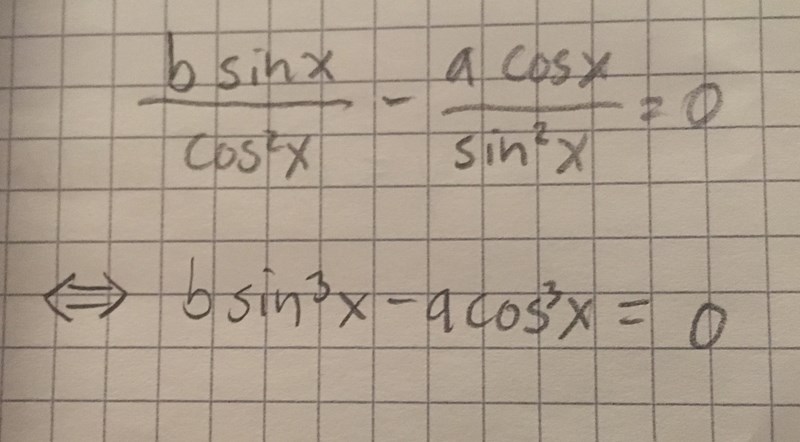 b sinx / cos²x - a cosx / sin²x = 0
⇔ b sin³x - a cos³x = 0